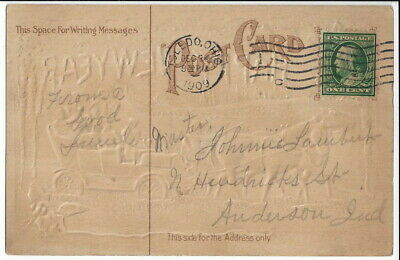 This Space For Writing Messages
POST CARD
TOLEDO, OHIO
DEC 
1909
U.S. POSTAGE
ONE CENT
From a
Good
Friend
Master,
Johnnie Lambert
N Hendricks St
Anderson Ind
This side for the Address only